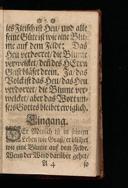 les Fleisch ist Heu, und alle
seine Güte ist wie eine Blu-
me auf dem Felde: Das
Heu verdorret, die Blume
verwelcket, denn des HErrn
Geist bläset drein. Ja, das
Volck ist das Heu, das Heu
verdorret, die Blume ver-
welcket, aber das Wort un-
sers Gottes bleibet ewiglich.
Eingang.
Der Mensch ist in seinem
Leben wie Graß, er blühet
wie eine Blume auf dem Felde.
Wenn der Wind darüber gehet,
A 4
so